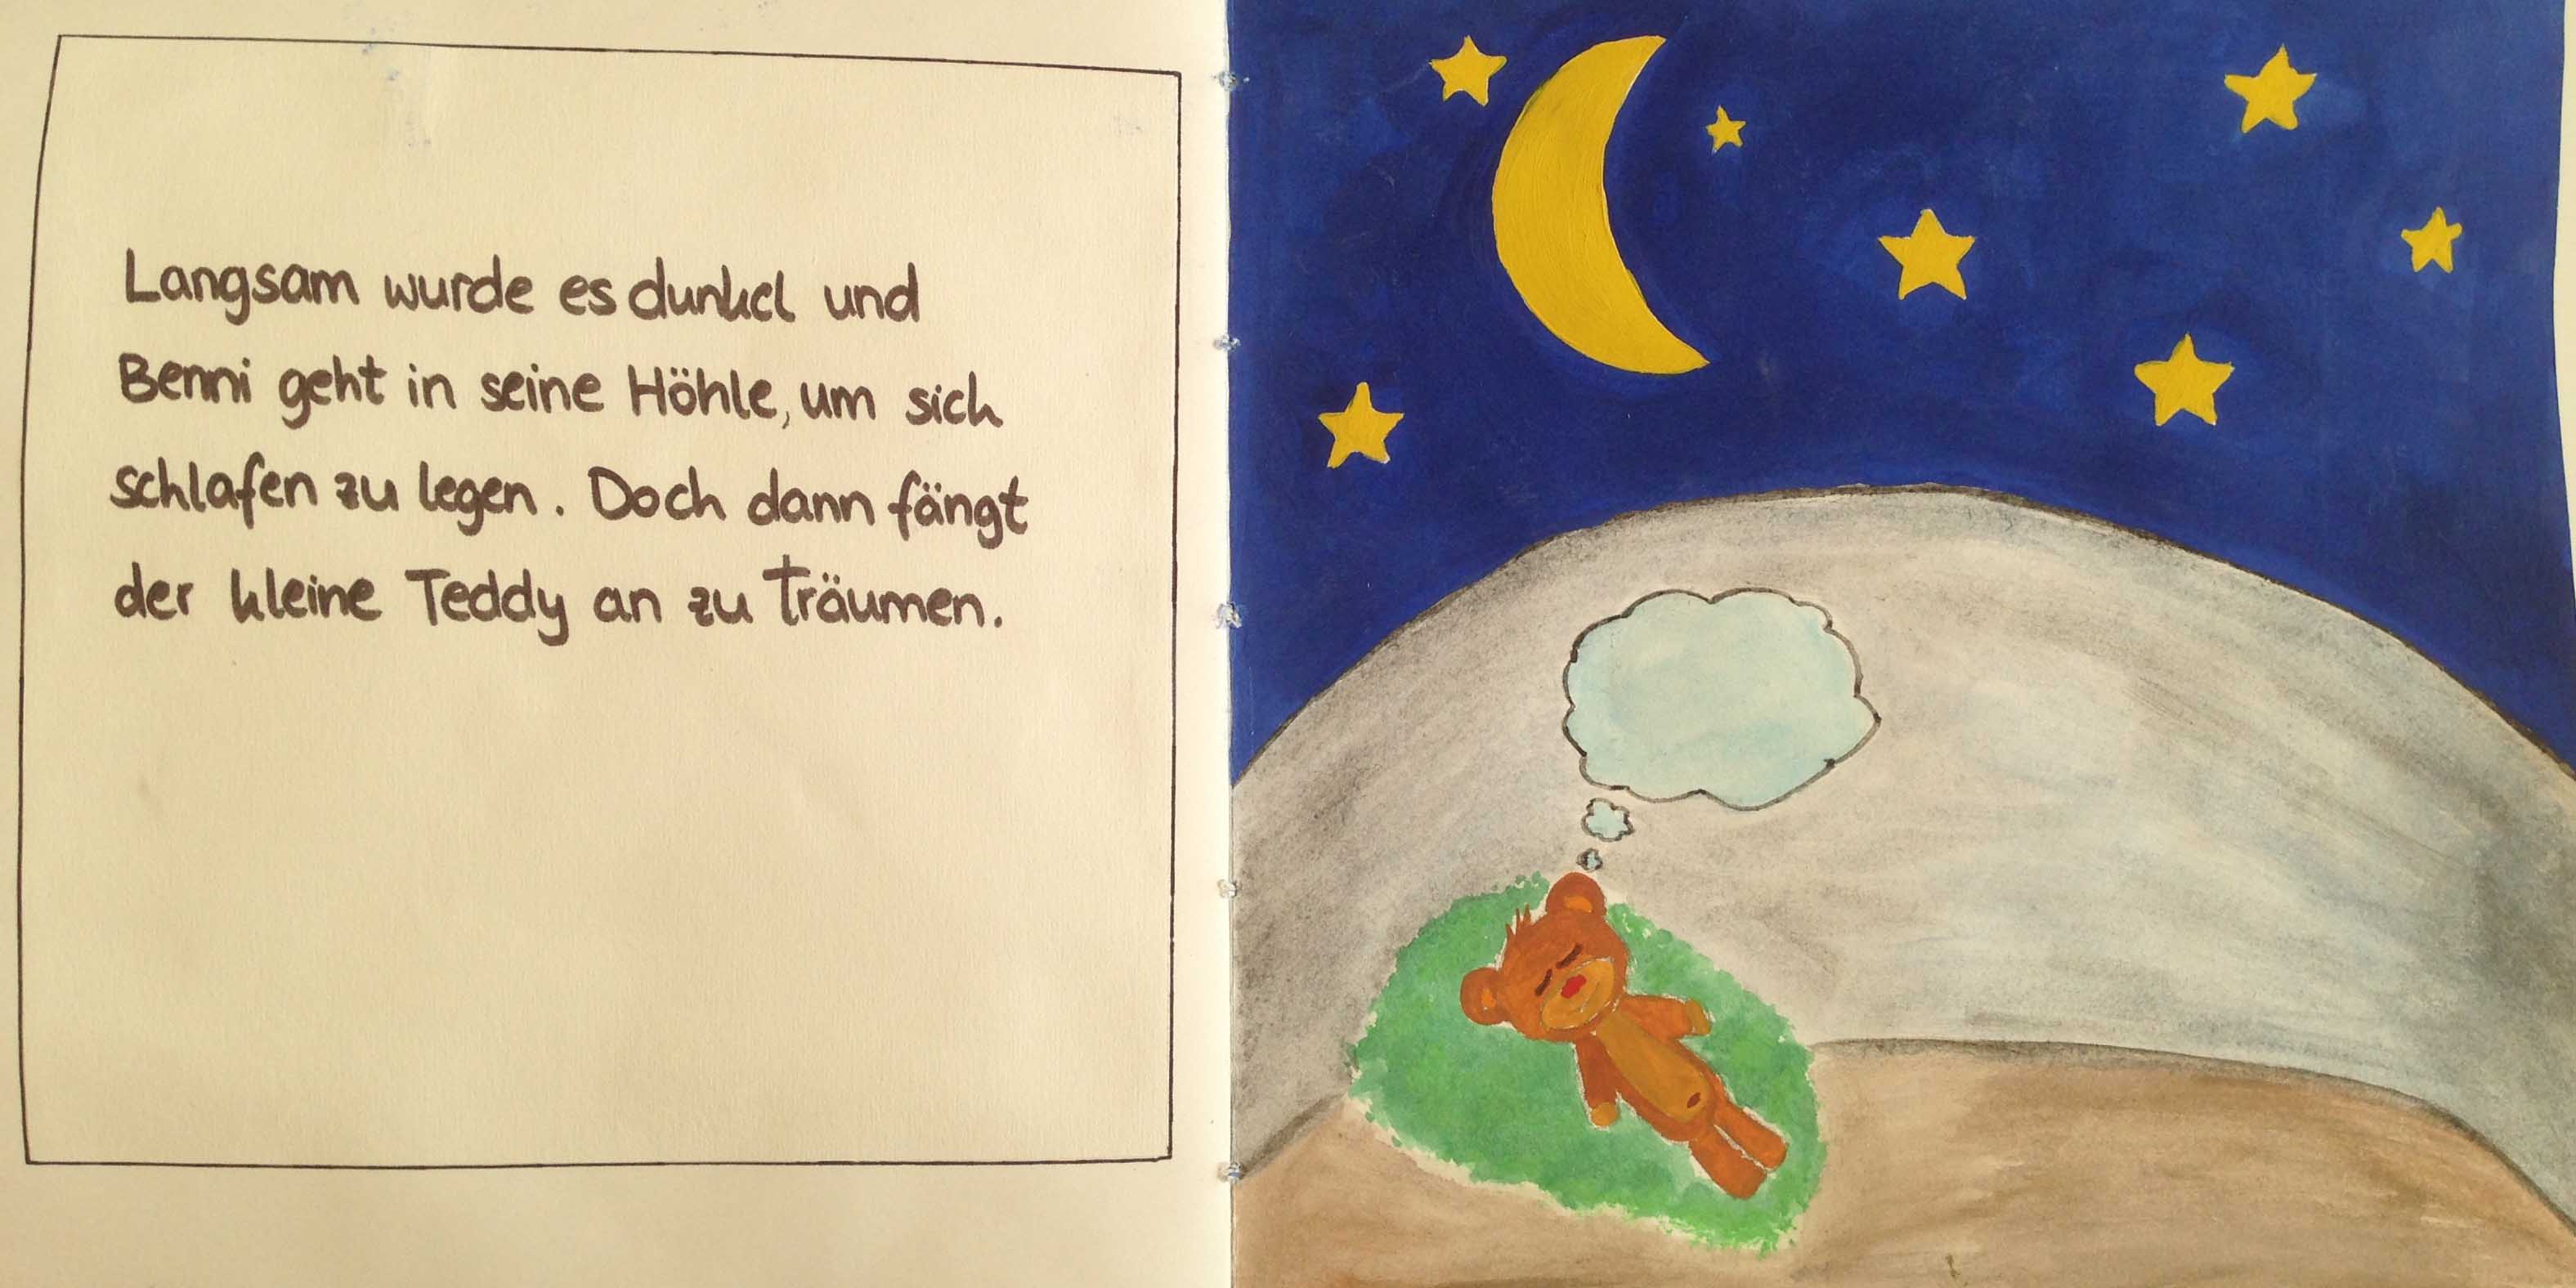 Langsam wurde es dunkel und
Benni geht in seine Höhle, um sich
schlafen zu legen. Doch dann fängt
der kleine Teddy an zu träumen.